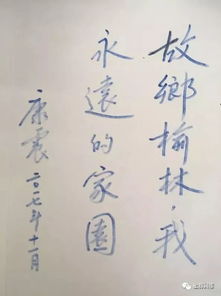 故鄉榆林，我
永遠的家園
康震二〇一七年十一月